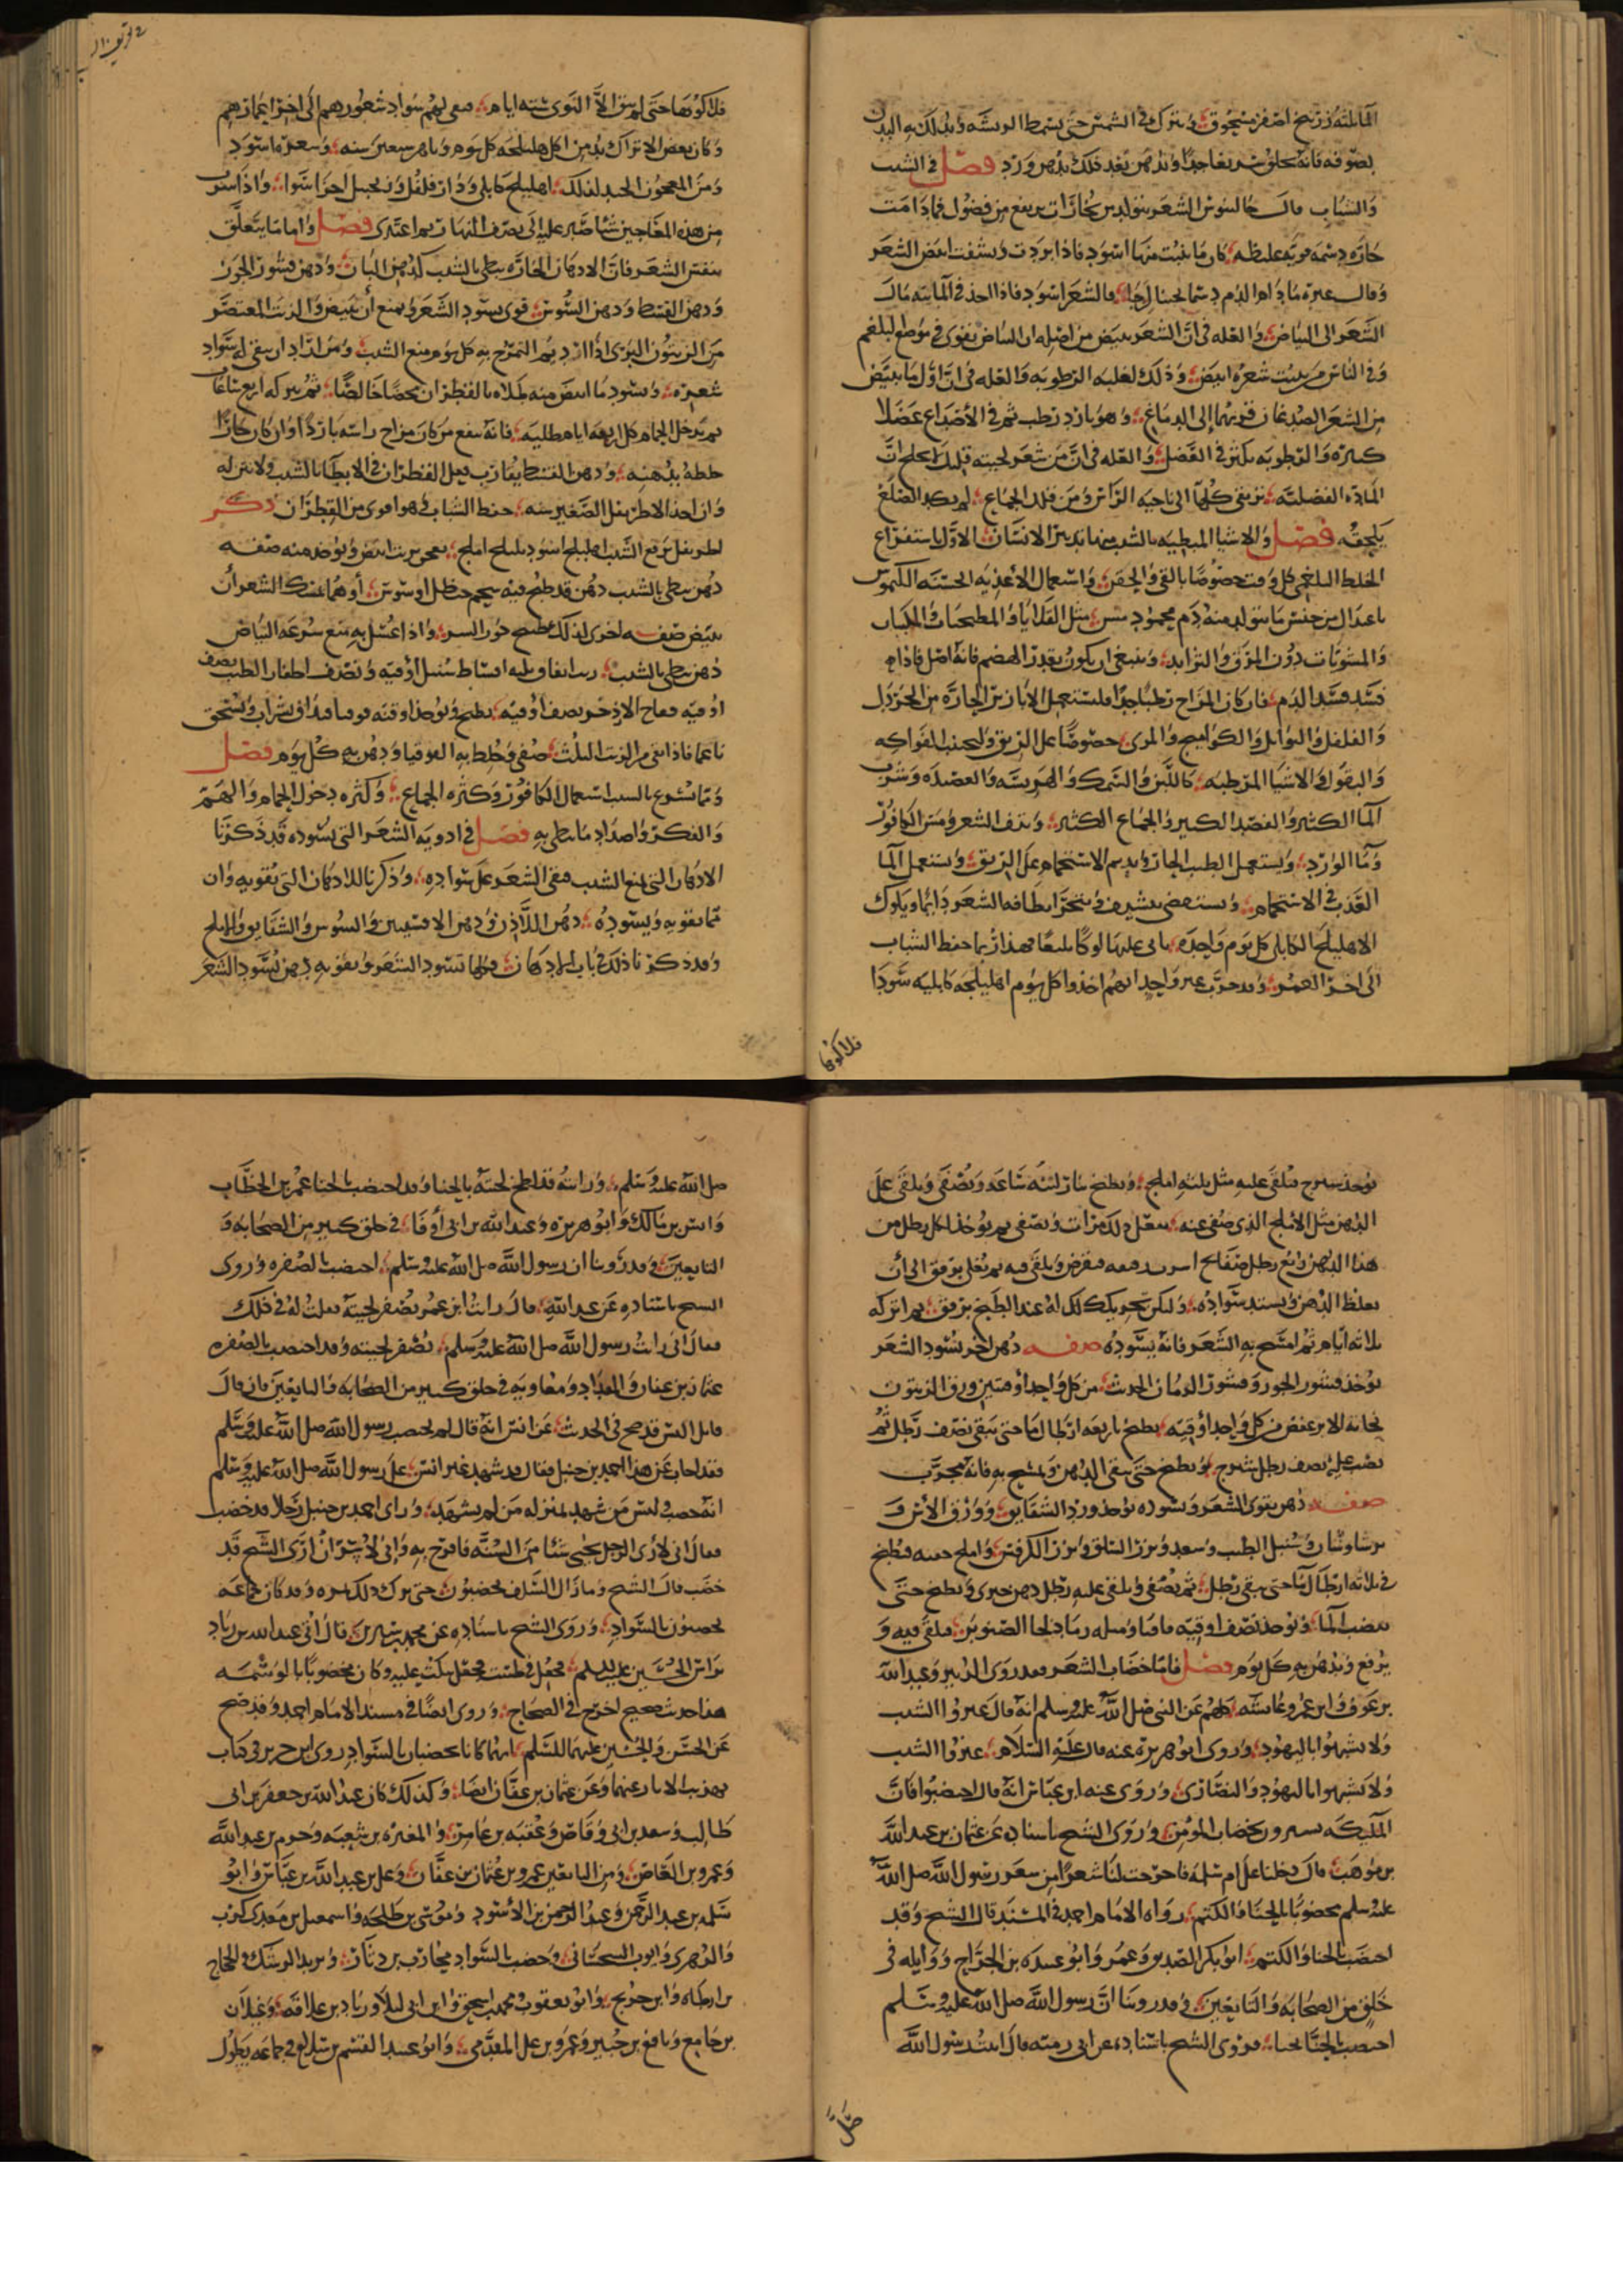 بصوفه فانه يحلق ثم بقاجدا وتدهن بعد ذلك بدهن ورد فصل في الشيب
والشباب قال جالينوس الشعر يتولد من بخارات ترتفع من فضول فما دامت
حاره دسمه قويه غليظه كان ما ينبت منها اسود فاذا بردت ونشفت ابيض الشعر
وقال غيره ما دام الدم دسما لحينا لزجا فالشعر اسود فاذا اخذ في المائيه مال
الشعر الى البياض والعله في ان الشعر يبيض من اصله ان البياض يقوى في موضع البلغم
وفي الناس من ينبت شعره ابيض وذلك لغلبة الرطوبه والعله في ان اول ما يبيض
من الشعر الصدغان قربهما الى الدماغ وهو بارد رطب ثم في الاصداغ عضلا
كبيره والرطوبه تكثر في العضل والعله في ان من شعر لحيته قليل
الماده الفضليه ترتقي كلها الى ناحيه الراس ومن قلل الجماع لم يكد الصلع
يلحقه فصل والاشيا المبطيه بالشيب منها تدبير الانسان الاول باستفراغ
الخلط البلغمي كل وقت خصوصا بالقي والحقن واستعمال الاغذيه الحسنه الكيموس
باعتدال من جنس ما يتولد منه دم محمود متين مثل القلايا والمطجنات والكباب
والمشويات دون المرق والثرايد وينبغي ان يكون بقدر الهضم فانه اصل فاذا
فسد فسد الدم فان كان المزاج رطبا جدا فليستعمل الابازير الحاره من الخردل
والفلفل والتوابل والكواميخ والمري خصوصا على الريق وليجتنب الفواكه
والبقول والاشيا المرطبه كاللبن والسمك والهريسه والعصيده وشرب
الما الكثير والفصد الكثير والجماع الكثير ونتف الشعر ومس الكافور
وما الورد ويستعمل الطيب الحار ويديم الاستحمام على الريق ويستعمل الما
العذب في الاستحمام
الاهليلج الكابلي كل يوم واحده ياتي عليها لوكا بليغا فهذا ربما حفظ الشباب
الى اخر العمر وقد جرب غير واحد انهم اخذوا كل يوم اهليلجه كابليه سودا
فلاكوها
فلاكوها حتى لم يبق الا النوى سته ايام فبقي لهم سواد شعورهم الى اخر اعمارهم
وكان بعض الاتراك يديم اكل هليلجه كل يوم وناهز سبعين سنه وشعره اسود
ومن المعجون الجيد لذلك اهليلج كابلي ودار فلفل وزنجبيل اجزا سوا واذا استف
من هذه المعاجين شيا صبر عليه الى نصف النهار ثم اغتذى فصل واما ما يتعلق
بنفس الشعر فان الادهان الحاره تبطي بالشيب كدهن البان ودهن قشور الجوز
ودهن القسط ودهن السوسن قوي يسود الشعر ويمنع ان يبيض والزيت المعتصر
من الزيتون البري اذا اديم التمرخ به كل يوم منع الشيب ومن اراد ان يبقى له سواد
شعره ويسود ما ابيض منه طلاه بالقطران محضا خالصا ثم يتركه اربع ساعات
ثم يدخل الحمام كل اربعه ايام طليه فانه ينفع من كان مزاج راسه باردا وان كان حارا
خلطه بدهنه ودهن القسط يقارب فعل القطران في الابطا بالشيب ولا نتن له
وان اخذ الاطريفل الصغير سنه حفظ الشباب وهو اقوى من القطران ذكر
اطريفل يمنع الشيب اهليلج اسود بليلج املج يعجن بزيت ابيض ويوخذ منه صفه
دهن يبطي بالشيب دهن قد طبخ فيه شحم حنظل او سوسن او هما يمسك الشعر ان
يبيض صفه اخرى لذلك يطبخ واذا غسل به منع سرعه البياض
دهن يبطي بالشيب زيت انفاق سته اقساط سنبل اوقيه ونصف اظفار الطيب نصف
ناعما فاذا بقي من الزيت الثلث صفي وخلط به القوقيا ودهن به كل يوم فصل
ومما يسرع بالشيب استعمال الكافور وكثره الجماع وكثره دخول الحمام والهم
والفكر واضداد ما يبطي به فصل في ادويه الشعر التي تسوده قد ذكرنا
الادهان التي تمنع الشيب فتبقي الشعر على سواده واذكر بالادهان التي تقويه وان
مما يقويه ويسوده دهن اللاذن ودهن الافسنتين والسوس والشقايق والاملج
وقد ذكرنا ذلك في باب الادهان وكلها تسود الشعر ويقويه دهن يسود الشعر
يوخذ شيرج فيلقى عليه مثل ثلثه املج ويطبخ بنار لينه ساعه ويصفى ويلقى على
الدهن مثل الاملج الذي صفي عنه يفعل ذلك مرات ويصفى ثم يوخذ لكل رطل من
هذا الدهن ربع رطل
يغلظ الدهن ويشتد سواده وليكن تحريكك له عند الطبخ برفق ثم اتركه
ثلاثه ايام ثم امسح به الشعر فانه يسوده صفه دهن اخر يسود الشعر
يوخذ قشور الجوز وقشور الرمان الحديث من كل واحد اوقيتين ورق الزيتون
من كل واحد اوقيه يطبخ باربعه ارطال ما حتى يبقى نصف رطل ثم
يصب عليه نصف رطل شيرج ويطبخ حتى يبقى الدهن ويمسح به فانه مجرب
صفه دهن يقوي الشعر ويسوده يوخذ ورد الشقايق وورق الاس و
برشاوشان وسنبل الطيب وسعد وبزر السلق وبزر الكرفس واملج حبه فيطبخ
في ثلاثه ارطال ما حتى يبقى رطل ثم يصفى ويلقى عليه رطل دهن خيري ويطبخ حتى
ينضب الما ويوخذ نصف اوقيه قاقيا ومثله رماد لحا الصنوبر فيلقى فيه و
يرفع ويدهن به كل يوم فصل فاما خضاب الشعر فقد روى الزبير وعبد الله
بن عوف وابن عمر وعايشه كلهم عن النبي صلى الله عليه وسلم انه قال غيروا الشيب
ولا تشبهوا باليهود وروى ابو هريره عنه قال عليه السلام غيروا الشيب
ولا تشبهوا باليهود والنصارى وروى عنه ابن عباس انه قال اختضبوا فان
المليكه يستبشرون بخضاب المومن وروى الشيخ باسناده عن عثمان بن عبد الله
بن موهب قال دخلنا على ام سلمه فاخرجت لنا شعرا من شعر رسول الله صلى الله
عليه وسلم مخضوبا بالحنا والكتم رواه الامام احمد في المسند قال الشيخ وقد
اختضب بالحنا والكتم ابو بكر الصديق وعمر وابو عبيده بن الجراح ووايله في
خلق من الصحابه والتابعين وقد روينا ان رسول الله صلى الله عليه وسلم
اختضب بالحنا بحتا فروى الشيخ باسناده عن ابي رمثه قال اتيت رسول الله
صلى
صلى الله عليه وسلم ورايته قد لطخ لحيته بالحنا وقد اختضب بالحنا عمر بن الخطاب
وانس بن مالك وابو هريره وعبد الله بن ابي اوفا في خلق كبير من الصحابه و
التابعين وقد روينا ان رسول الله صلى الله عليه وسلم اختضب بالصفره وروى
الشيخ باسناده عن عبد الله قال رايت ابن عمر يصفر لحيته فقلت له في ذلك
فقال اني رايت رسول الله صلى الله عليه وسلم يصفر لحيته وقد اختضب بالصفره
عثمان بن عفان والمقداد ومعاويه في خلق كبير من الصحابه والتابعين فان قال
قايل اليس قد صح في الحديث عن انس انه قال لم يخضب رسول الله صلى الله عليه وسلم
فقد اجاب عن هذا احمد بن حنبل فقال قد شهد غير انس على رسول الله صلى الله عليه وسلم
انه خضب وليس من شهد بمنزله من لم يشهد وراى احمد بن حنبل رجلا قد خضب
فقال اني لارى الرجل يحيي شيا من السنه فافرح به واني لاسر ان ارى الشيخ قد
خضب قال الشيخ وما زال السلف يخضبون حتى ترك ذلك وقد كان جماعه
يخضبون بالسواد وروى الشيخ باسناده عن محمد بن سيرين قال اتي عبيد الله بن زياد
براس الحسين عليه السلم فجعل في طست فجعل ينكت عليه وكان مخضوبا بالوشمه
هذا حديث صحيح اخرج في الصحاح وروى ايضا في مسند الامام احمد وقد صح
عن الحسن والحسين عليهما السلم انهما كانا يخضبان بالسواد روى ابن جرير في كتاب
تهذيب الاثار عنهما وعن عثمان بن عفان ايضا وكذلك كان عبد الله بن جعفر بن ابي
طالب وسعد بن ابي وقاص وعقبه بن عامر والمغيره بن شعبه وجرير بن عبد الله
وعمرو بن العاص ومن التابعين عمرو بن عثمان بن عفان وعلي بن عبد الله بن عباس وابو
سلمه بن عبد الرحمن وعبد الرحمن بن الاسود وموسى بن طلحه واسمعيل بن معدي كرب
والزهري وايوب السختياني وخضب بالسواد محارب بن دثار ويزيد الرشك والحجاج
بن ارطاه وابن جريج وابو يعقوب محمد بن اسحق وابن ابي ليلا وزياد بن علاقه وغيلان
بن جامع ونافع بن جبير وعمرو بن علي المقدمي وابو عبيد القسم بن سلام في جماعه يطول